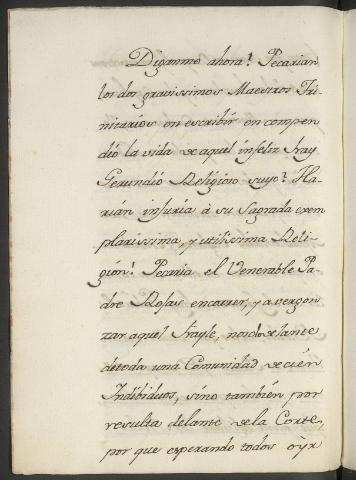 Diganme ahora! Pecarian
los dos gravissimos Maestros Tri-
nitarios en escribir en compen
dió la vida de aquel infeliz fray
Gerundió Religioso suyo? Ha-
rián injuria á su Sagrada exem
plarissima, y utilissima Reli-
gión? Pecaria el Venerable Pa-
dre Rosas en correr, y a vergon
zar aquel frayle, no solo delante
detoda una Comunidad de cién
Indibiduos, sino también por
resulta delante de la Corte,
por que esperando todos oýr